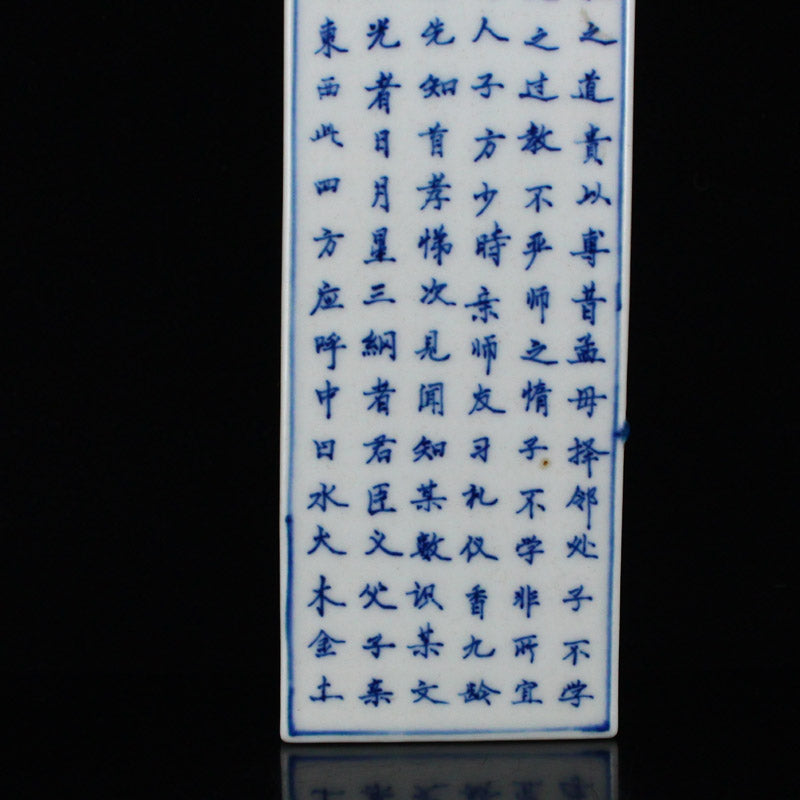 之道貴以專昔孟母择邻处子不学
之过教不严师之惰子不学非所宜
人子方少時亲师友习礼仪香九龄
先知首孝悌次見闻知某數识某文
光者日月星三綱者君臣义父子亲
東西此四方应呼中曰水火木金土